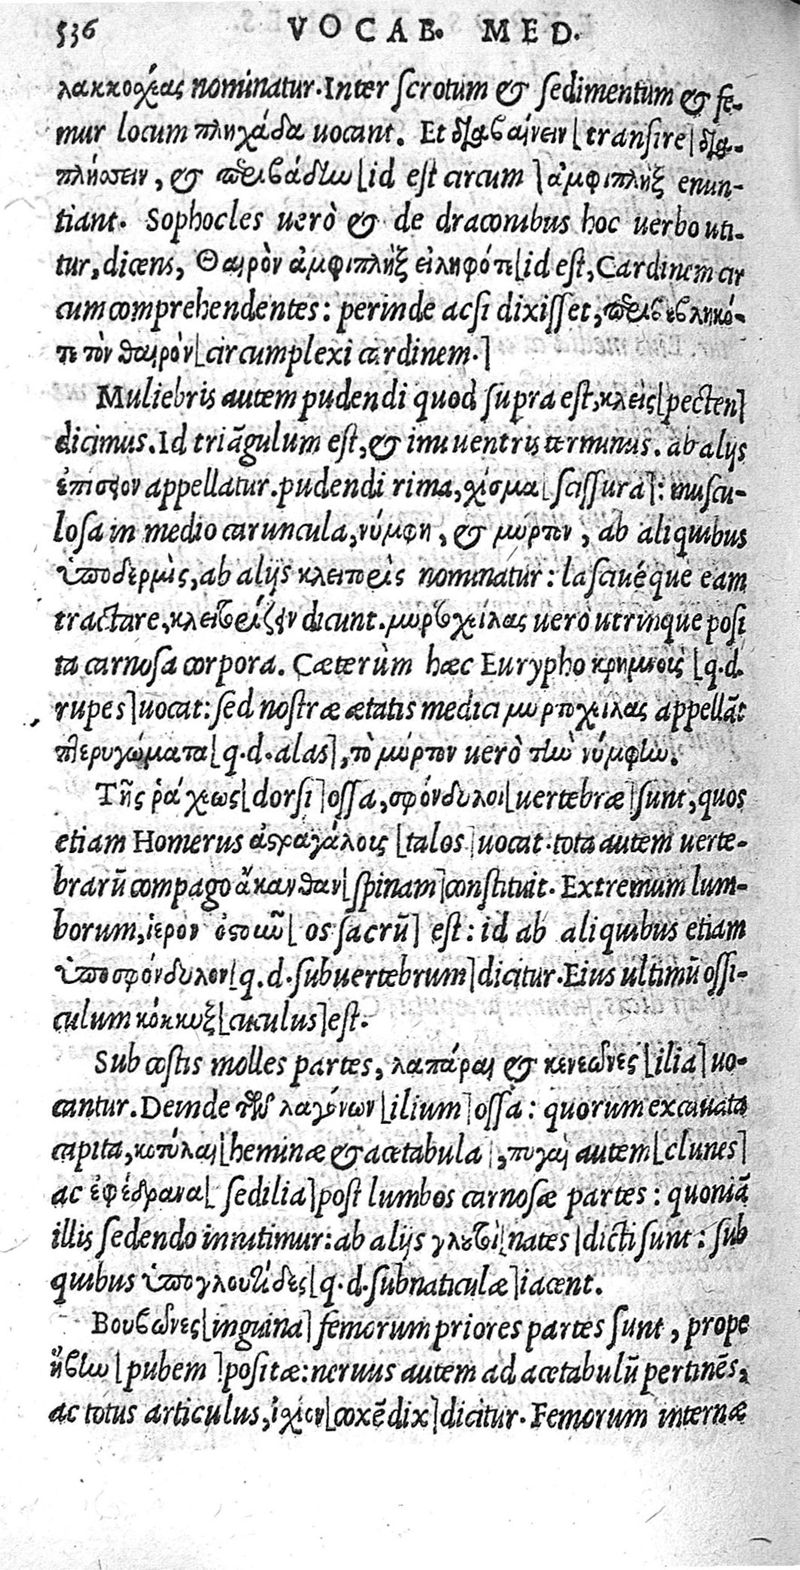 536 VOCAB. MED.
λακκοχέας nominatur. Inter scrotum & sedimentum & fe-
mur locum πληχάδα uocant. Et διαβαίνειν [transire] δια-
πλήσσειν, & περιβάδην [id est circum] ἀμφιπλὴξ enun-
tiant. Sophocles uerò & de draconibus hoc uerbo uti-
tur, dicens, Θαιρὸν ἀμφιπλὴξ εἰληφότε [id est, Cardinem cir
cum comprehendentes: perinde ac si dixisset, περιβεβληκό-
τε τὸν θαιρόν [circumplexi cardinem.]
Muliebris autem pudendi quod supra est, κλεὶς [pecten]
dicimus. Id triāgulum est, & imu uentris terminus. ab alijs
ἐπίσειον appellatur. pudendi rima, χίσμα [scissura]: muscu-
losa in medio caruncula, νύμφη, & μύρτον, ab aliquibus
ὑποδερμὶς, ab alijs κλειτορὶς nominatur: lasciuéque eam
tractare, κλειτορίζειν dicunt. μυρτοχείλας uerò utrinque posi
ta carnosa corpora. Cæterùm hæc Eurypho κρημνοὺς [q.d.
rupes] uocat: sed nostræ ætatis medici μυρτοχείλας appellāt
πτερυγώματα [q.d. alas], τὸ μύρτον uerò τὴν νύμφην.
Τῆς ῥάχεως [dorsi] ossa, σφόνδυλοι [uertebræ] sunt, quos
etiam Homerus ἀστραγάλοις [talos] uocat. tota autem uerte-
brarū compago ἄκανθαν [spinam] constituit. Extremum lum-
borum, ἱερὸν ὀστοῦν [os sacrū] est: id ab aliquibus etiam
ὑποσφόνδυλον [q.d. subuertebrum] dicitur. Eius ultimū ossi-
culum κόκκυξ [cuculus] est.
Sub costis molles partes, λαπάραι & κενεῶνες [ilia] uo-
cantur. Deinde τῶν λαγόνων [ilium] ossa: quorum excauata
capita, κοτύλαι [heminæ & acetabula], πυγαὶ autem [clunes]
ac ἐφέδρανα [sedilia] post lumbos carnosæ partes: quoniā
illis sedendo innitimur: ab alijs γλουτοὶ [nates] dicti sunt: sub
quibus ὑπογλουτίδες [q.d. subnaticulæ] iacent.
Βουβῶνες [inguina] femorum priores partes sunt, prope
ἥβην [pubem] positæ: neruus autem ad acetabulū pertinēs,
ac totus articulus, ἰχίον [coxēdix] dicitur. Femorum internæ